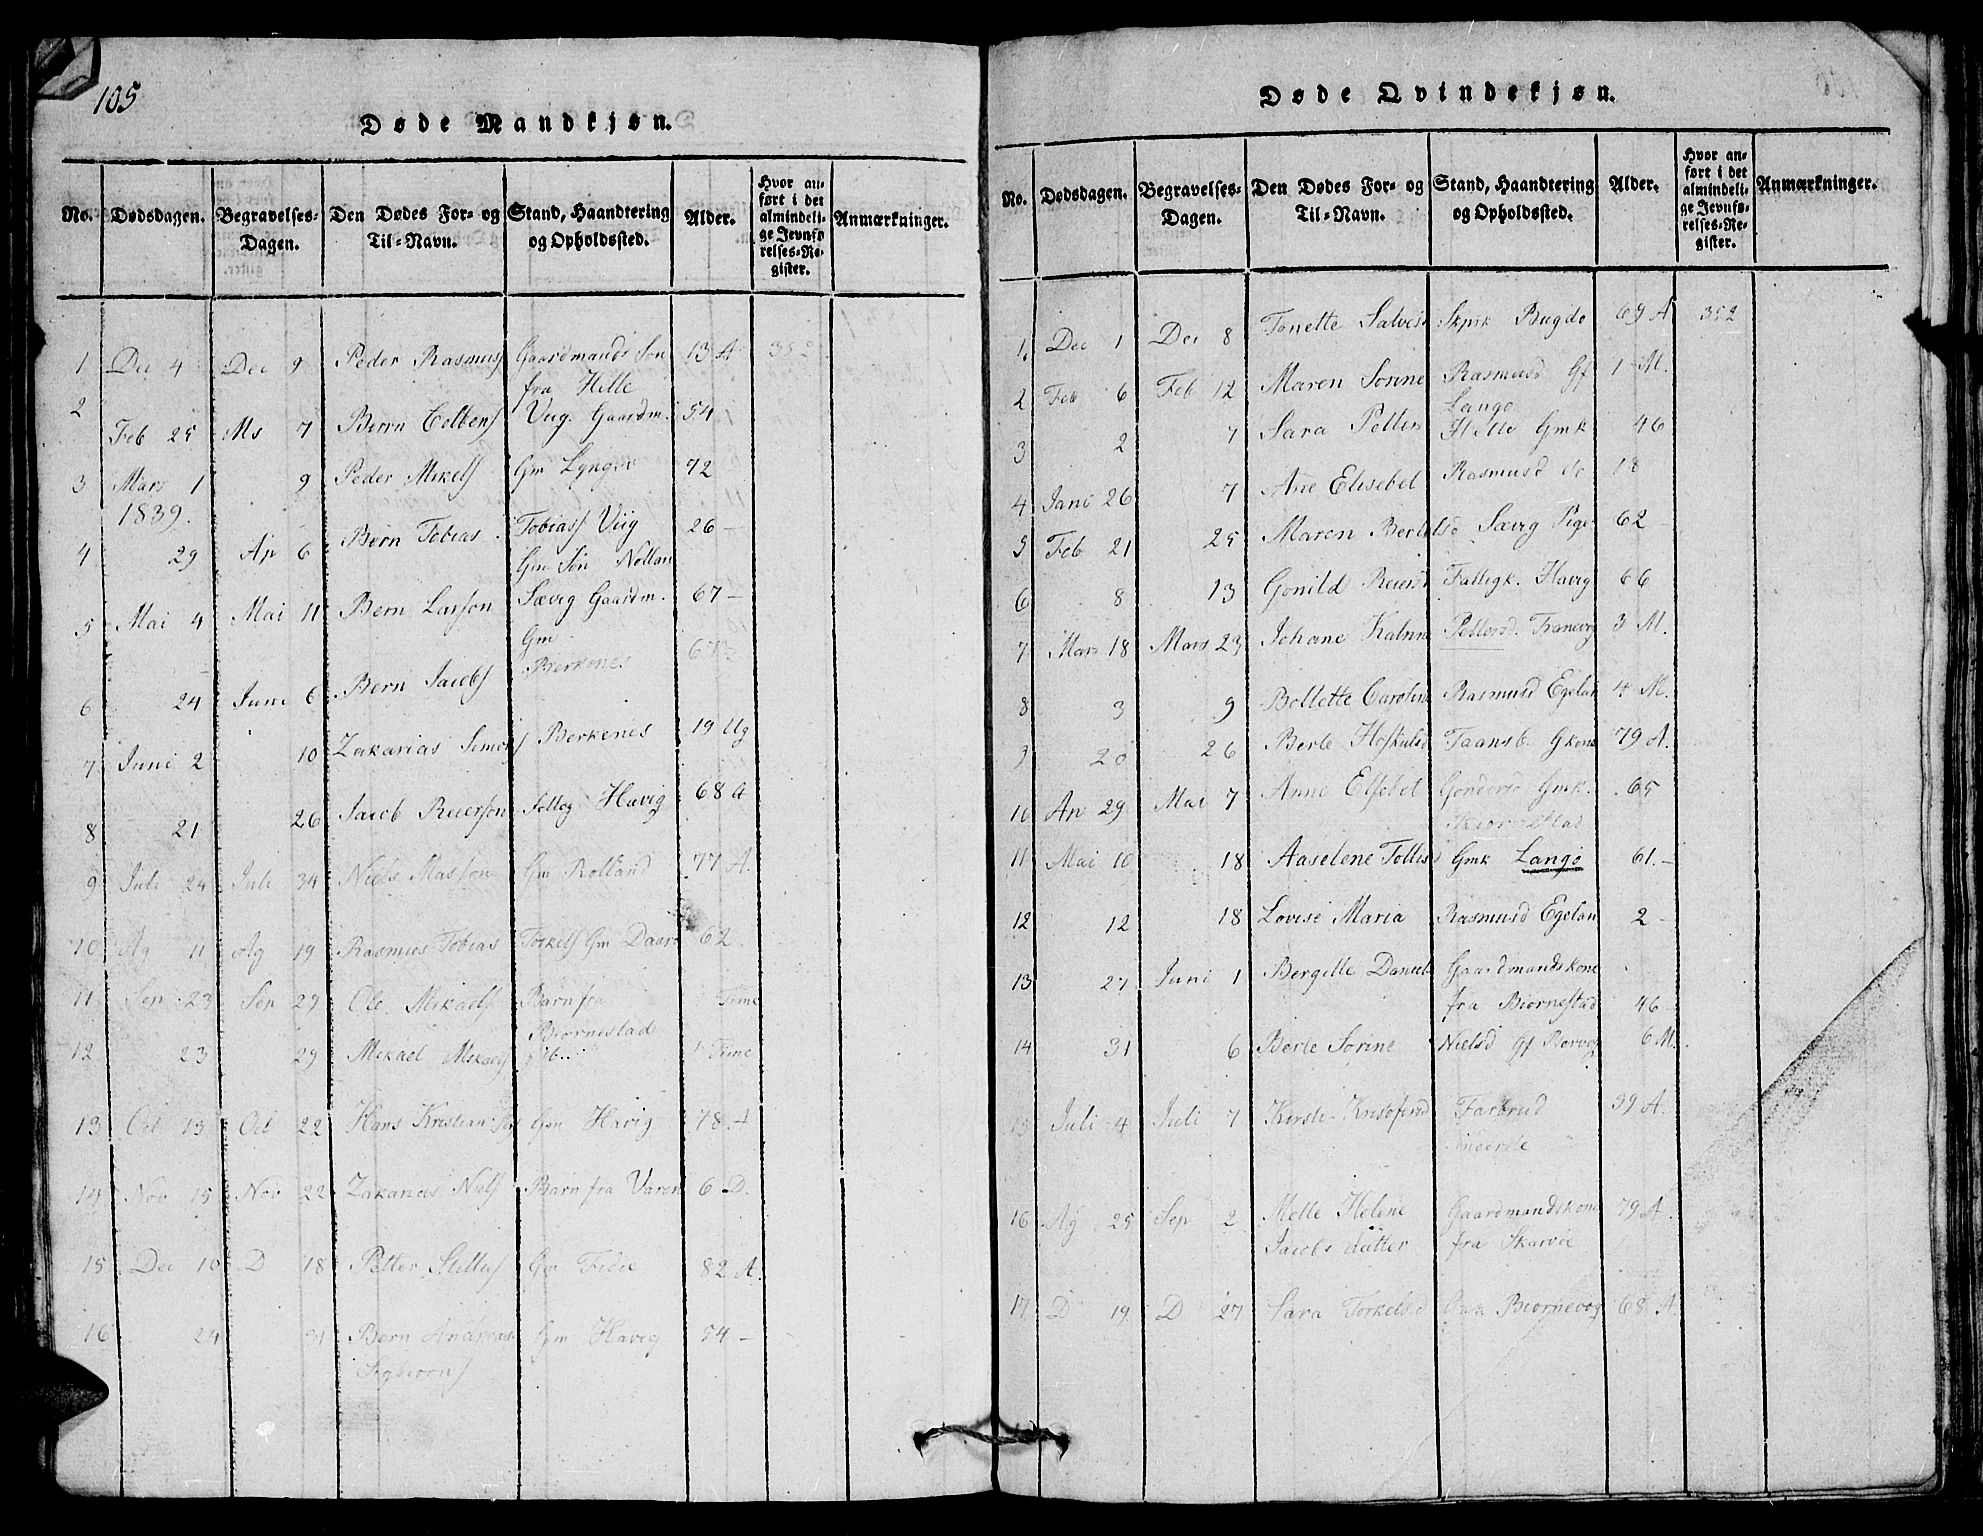 105
Døde Mandkjøn.
No. Dødsdagen. Begravelses-Dagen. Den Dødes For- og Til-Navn. Stand, Haandtering og Opholdssted. Alder. Hvor anført i det almindelige Jevnførelses-Register. Anmærkninger.
1 Dec 4 Dec 9 Peder Rasmuss Gaardmands Søn 13 A 352
fra Hille
2 Feb 25 Ms 7 Bernn Colbens Viig. Gaardm. 54
3 Mars 1 9 Peder Mikels Gm Lyngø 72
1839.
4 29 Ap 6 Bern Tobias Tobiass Viig 26 –
Gm Søn
5 Mai 4 Mai 11 Bern Larsson Sævig Gaardm. 67 –
6 24 Juni 6 Bern Jacobs Gm 67
Berkenes
7 Juni 2 10 Zakarias Simons Berkenes 19 Ug
8 21 26 Jacob Reierson Havig 68 A
9 Juli 24 Juli 34 Niels Masson Gm Rolland 77 A.
10 Ag 11 Ag 19 Rasmus Tobias Torkels Gm 62.
11 Sep 23 Sep 29 Ole Mikaels Barn fra Time
Biørnestad
12 23 29 Mikael Mikaels Time
13 Oct 13 Oct 22 Hans Kristian Gm Havig 78 A
14 Nov 15 Nov 22 Zakarias Niels Barn fra Varen 6 D.
15 Dec 10 D 18 Petter Gm Fidie 82 A.
16 24 31 Bern Andreas Gm Havig 54 –
Døde Qvindekjøn.
No. Dødsdagen. Begravelses-Dagen. Den Dødes For- og Til-Navn. Stand, Haandtering og Opholdssted. Alder. Hvor anført i det almindelige Jevnførelses-Register. Anmærkninger.
1. Dec 1 Dec 8 Tonette Salves Bugde 69 A 352
2 Feb 6 Feb 12 Maren Sorine Rasmusd Gf 1 – M.
Langø
3 2 7 Sara Petters Hille Gmk 46
4 Janu 26 7 Ane Elisebet Rasmusd do 18
5 Feb 21 25 Maren Bertelsd Sævig Pige 62 –
6 8 13 Gonild Reiersd Fattigk. Havig 66
7 Mars 18 Mars 23 Johane Katrin Pettersd. Tranevog 3 M.
8 3 9 Bollette Caroline Rasmusd Egelan 4 M.
9 20 26 Berte Hoskulsd Taansb. Gkone 79 A.
10 Ap 29 Mai 7 Anne Elsebet Gondersd Gmk. 65
11 Mai 10 18 Aaselene Tollis Gmk Langø 61. –
12 12 18 Lovise Maria Rasmusd Egelan 2 –
13 27 Juni 1 Bergitte Daniels Gaardmandskone
fra Biørnestad 46 –
14 31 6 Berte Sorine Nielsd Gf 6 M.
15 Juli 4 Juli 7 Kirste Kristofersd 39 A.
16 Ag 25 Sep 2 Mette Helene Gaardmandskone 79 A.
Jacobs datter fra Skarvøe
17 D 19 D 27 Sara Torkelsd Biørnevog 68 A